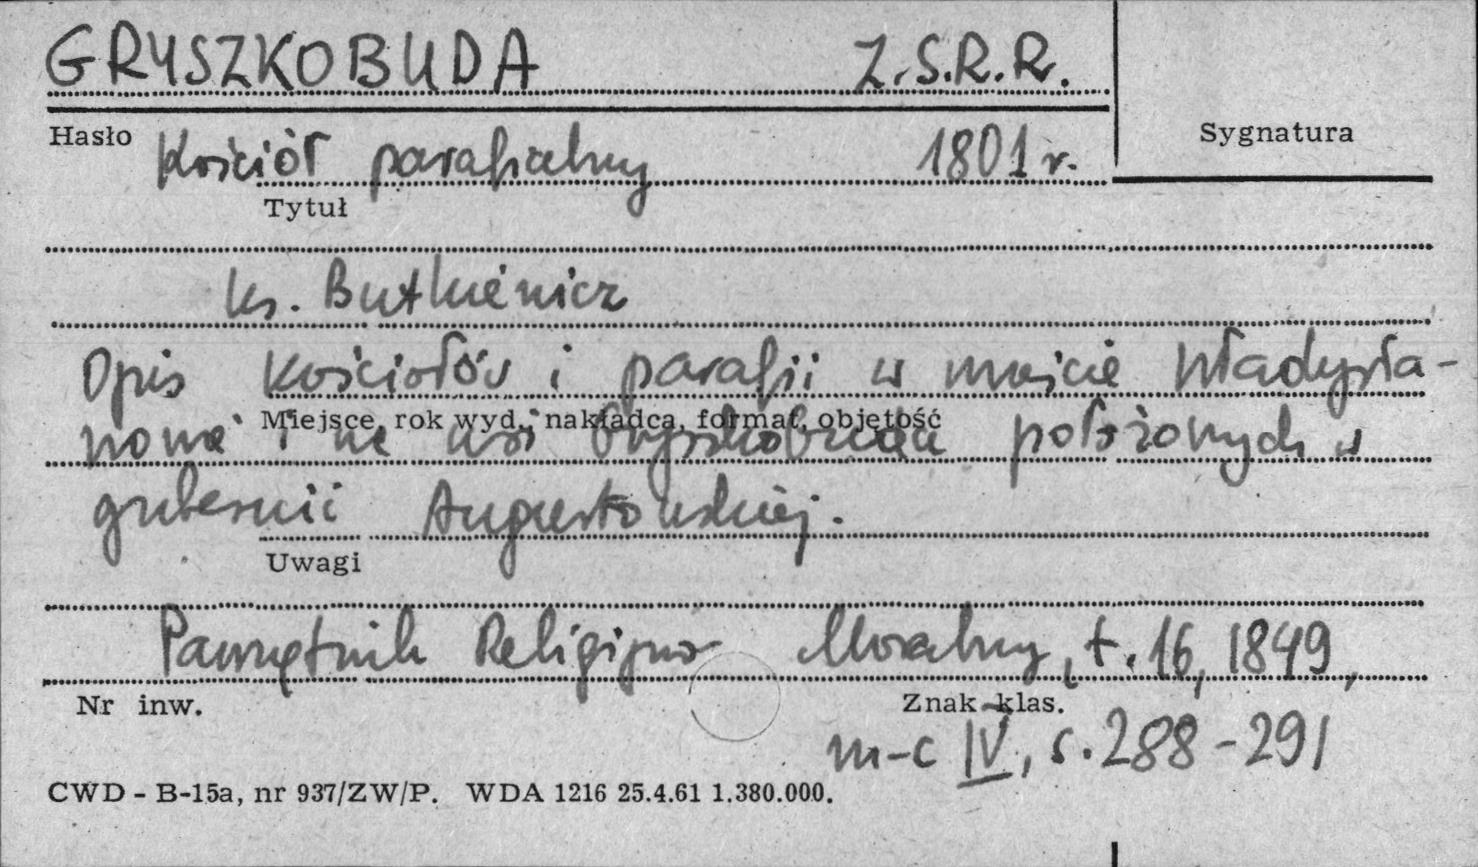 GRYSZKOBUDA Z.S.R.R.
Hasło Kościół parafialny 1801 r. Sygnatura
Tytuł
ks. Butkiewicz
Opis kościołów i parafii w mieście Władysła-
Miejsce, rok wyd., nakładca, format, objętość
nowa i na wsi Gryszkobudda położonych w
gubernii Augustowskiej.
Uwagi
Pamiętnik Religijno Moralny, t. 16, 1849,
Nr inw. Znak klas.
m-c IV, s. 288-291
CWD - B-15a, nr 937/ZW/P. WDA 1216 25.4.61 1.380.000.